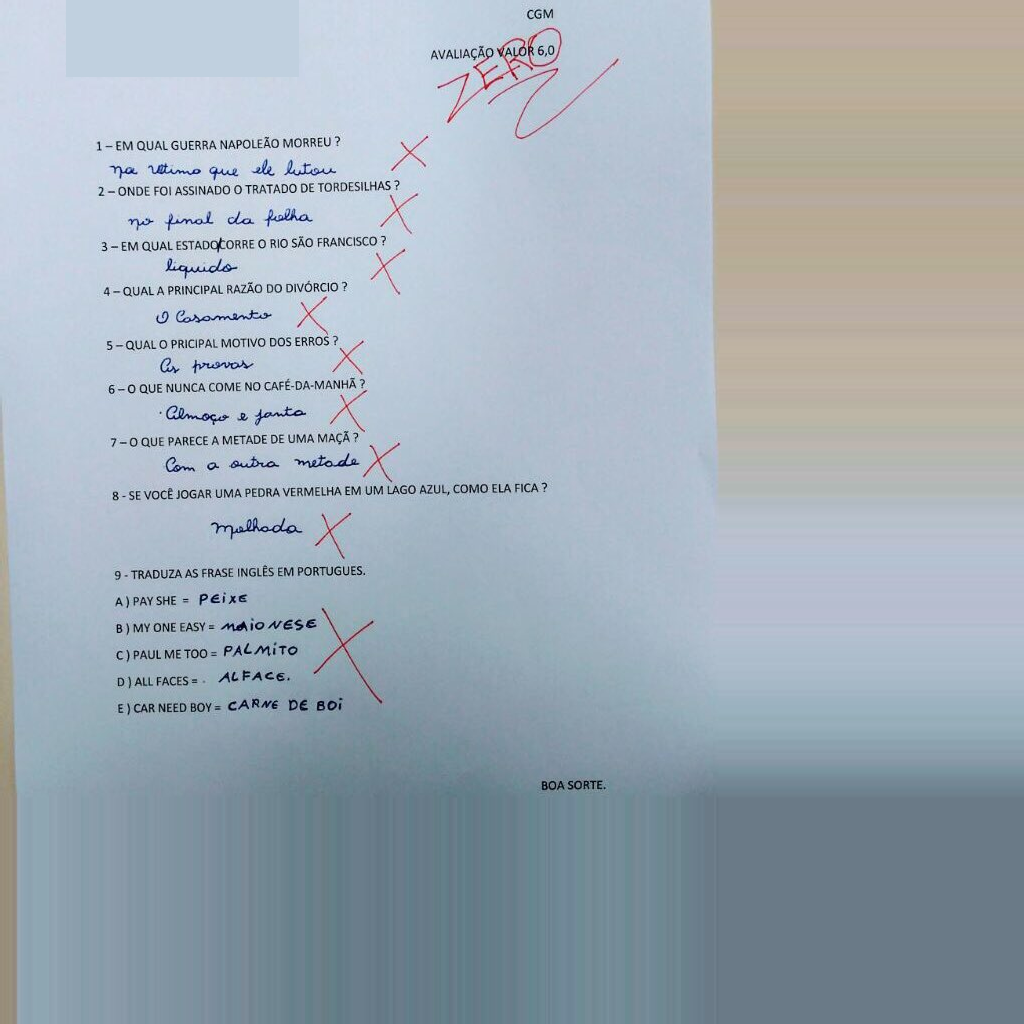 CGM
AVALIAÇÃO VALOR 6,0
ZERO
1 – EM QUAL GUERRA NAPOLEÃO MORREU ?
na ultima que ele lutou
2 – ONDE FOI ASSINADO O TRATADO DE TORDESILHAS ?
no final da folha
3 – EM QUAL ESTADO CORRE O RIO SÃO FRANCISCO ?
liquido
4 – QUAL A PRINCIPAL RAZÃO DO DIVÓRCIO ?
O Casamento
5 – QUAL O PRICIPAL MOTIVO DOS ERROS ?
As provas
6 – O QUE NUNCA COME NO CAFÉ-DA-MANHÃ ?
Almoço e janta
7 – O QUE PARECE A METADE DE UMA MAÇÃ ?
Com a outra metade
8 - SE VOCÊ JOGAR UMA PEDRA VERMELHA EM UM LAGO AZUL, COMO ELA FICA ?
Molhada
9 - TRADUZA AS FRASE INGLÊS EM PORTUGUES.
A ) PAY SHE = PEIXE
B ) MY ONE EASY = MAIONESE
C ) PAUL ME TOO = PALMITO
D ) ALL FACES = ALFACE.
E ) CAR NEED BOY = CARNE DE BOI
BOA SORTE.